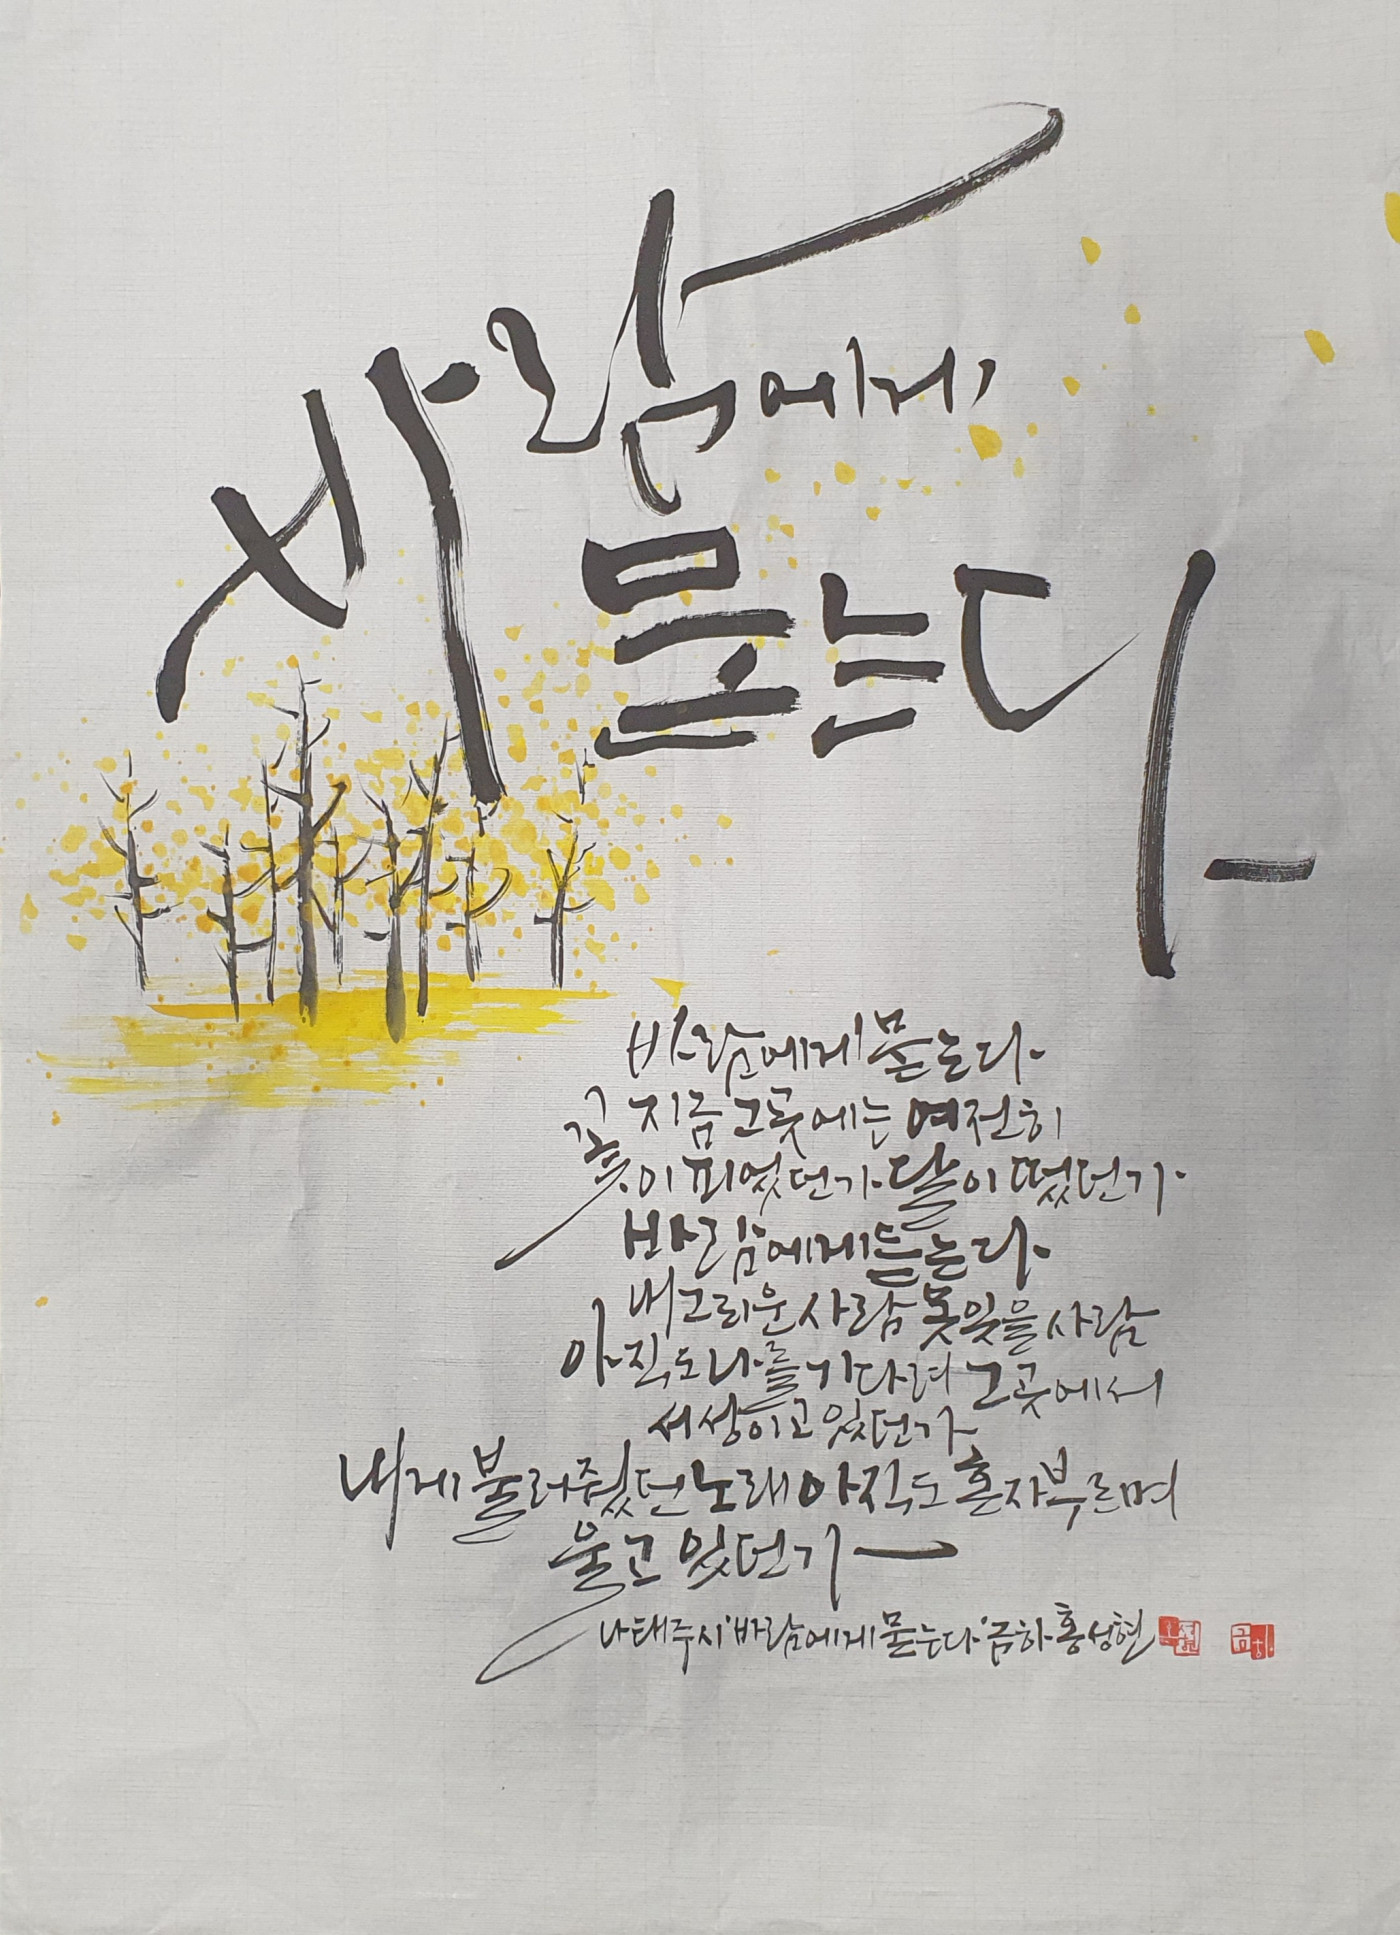 바람에게
묻는다
바람에게 묻는다
지금 그곳에는 여전히
꽃이 피었던가 달이 떴던가
바람에게 듣는다
내 그리운 사람 못 잊을 사람
아직도 나를 기다려 그곳에서
서성이고 있던가
내게 불러줬던 노래 아직도 혼자 부르며
울고 있던가
나태주시 '바람에게 묻는다' 금하 홍성현